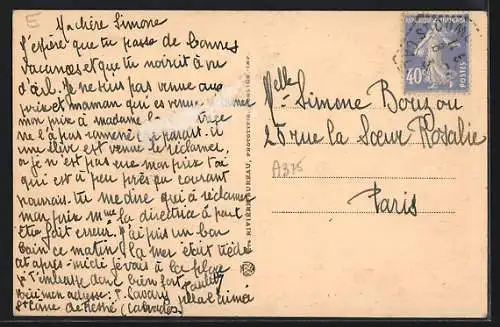 E
Ma chère Simone
J'espère que tu passe de bonnes
vacances et que tu noircit à vu
d'œil. Je ne suis pas venue aux
prix et maman qui es venue
mon prix à madame la
ne l'a pas ramené il parait. Il
une élève est venue le réclamer,
or je n'est pas eue mon prix toi
qui est à peu près au courant
pourrais tu me dire qui à réclamer
mon prix Mme la directrice à peut
être fait erreur. J'ai pris un bon
bain ce matin la mer était tiède
et après-midi je vais à la plage
je t'embrasse donc bien fort Paulette
Voici mon adresse:
(Calvados)
RIVIÈRE-BUREAU, PHOTOTYPIE,
RÉPUBLIQUE FRANÇAISE
40c
POSTES
Melle Simone Bouzou
25 rue la Sœur Rosalie
A375
Paris